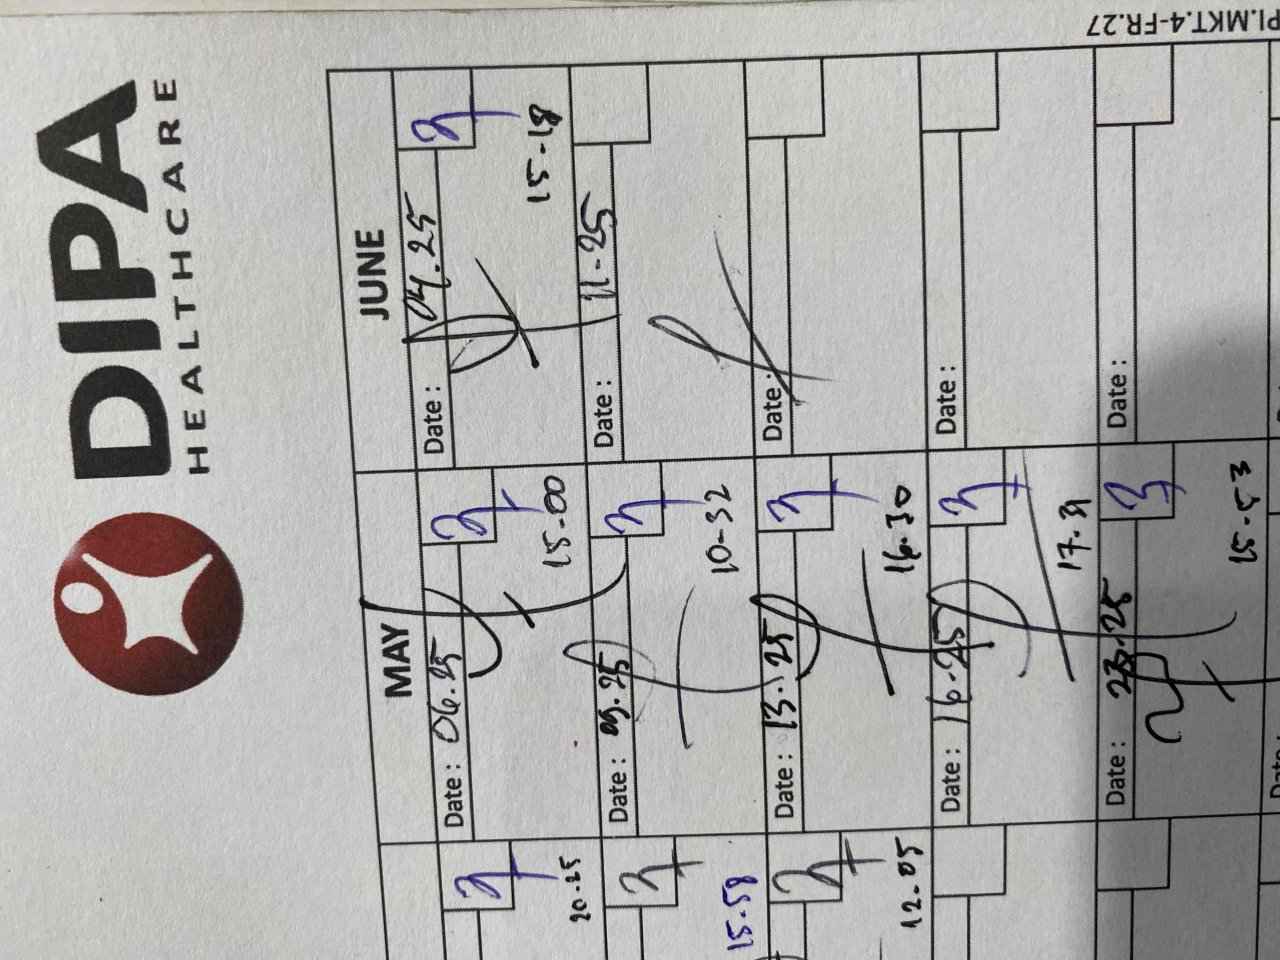 DIPA
HEALTHCARE
PI.MKT.4-FR.27
MAY
JUNE
20.25
Date : 06.25
15-00
Date : 04.25
15-18
15.58
Date : 09.25
10-32
Date : 11-25
12-05
Date : 13.25
16.30
Date :
Date : 16.25
17.31
Date :
Date : 23.25
15-53
Date :